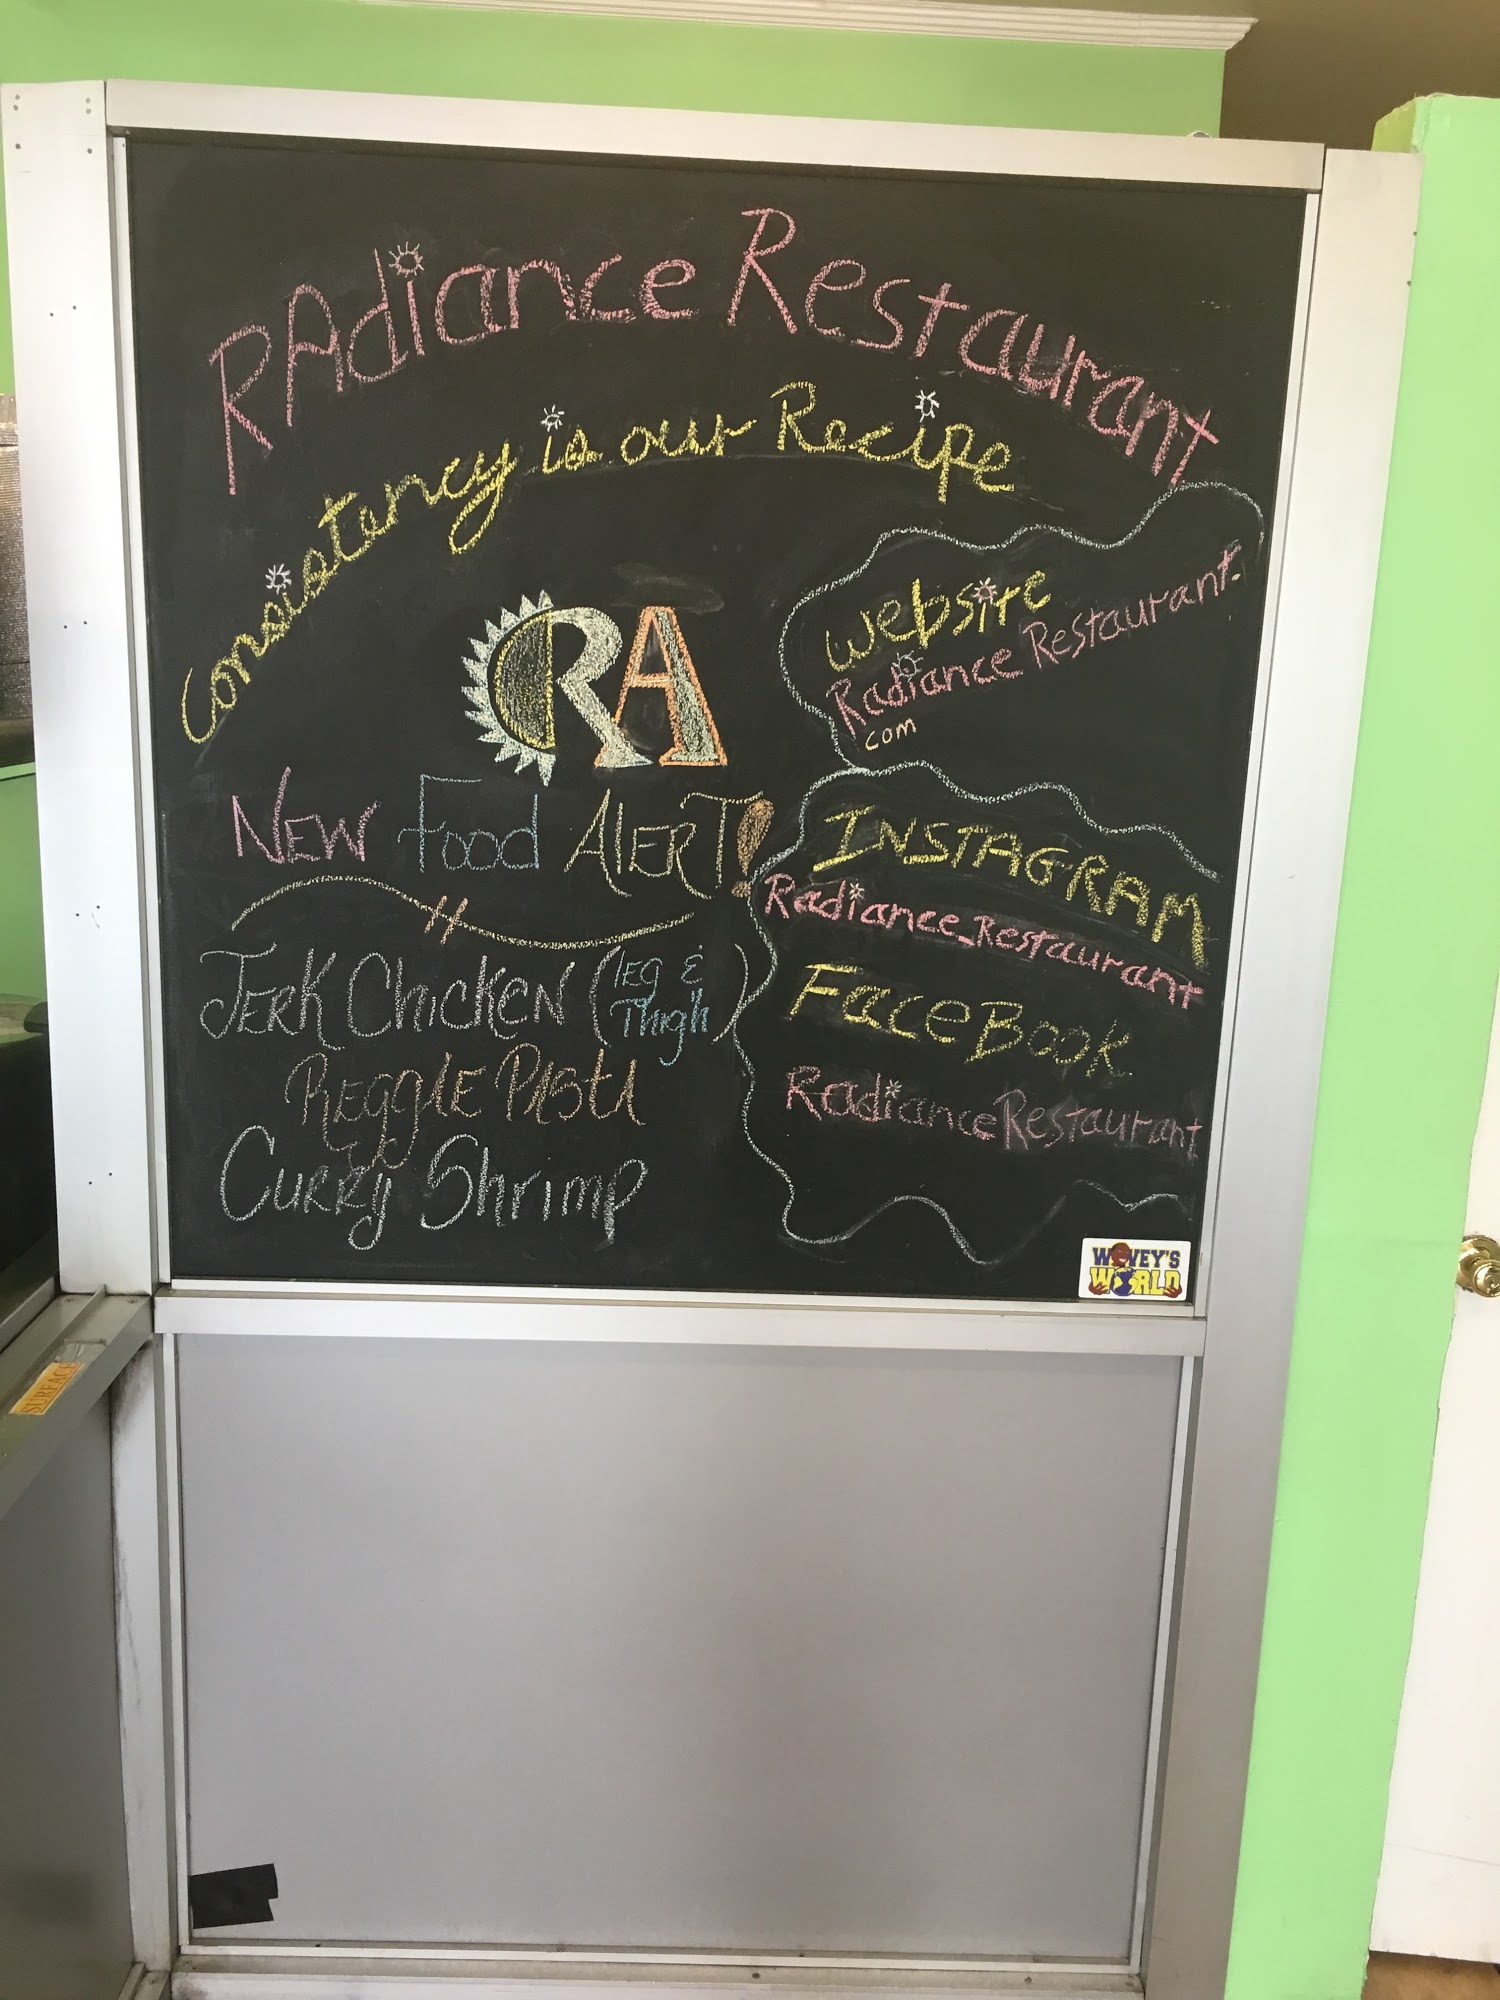 RAdiance Restaurant
Consistency is our Recipe
RA
website
Radiance Restaurant.
com
New Food Alert!
Jerk Chicken (leg & Thigh)
Reggie Pasta
Curry Shrimp
INSTAGRAM
Radiance_Restaurant
FaceBook
Radiance Restaurant
WOVEY'S
WORLD
SURFACE